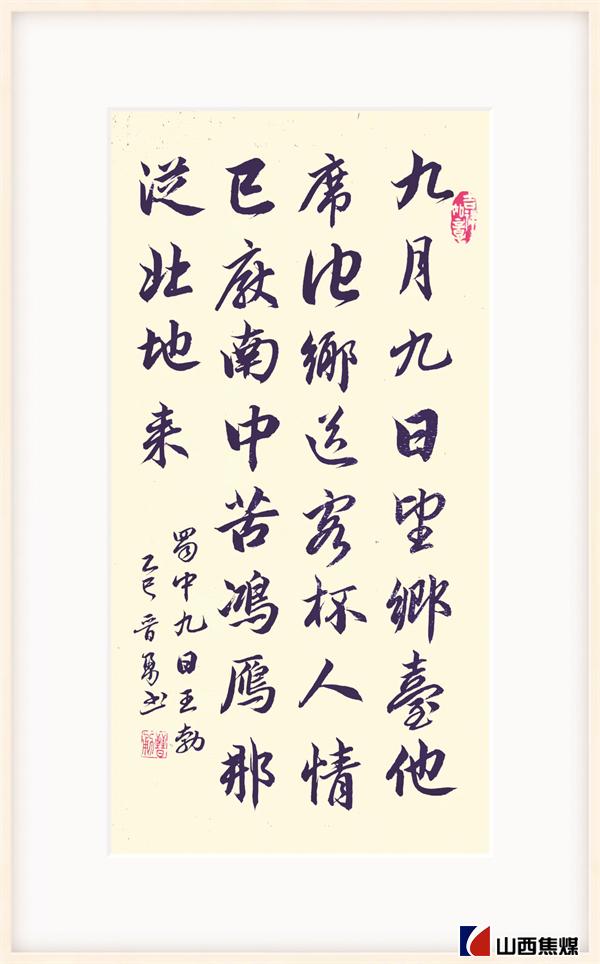 九月九日望鄉臺他
席他鄉送客杯人情
已厭南中苦鴻鴈那
從北地来
蜀中九日王勃
乙巳晋勇书
吉祥如意
山西焦煤